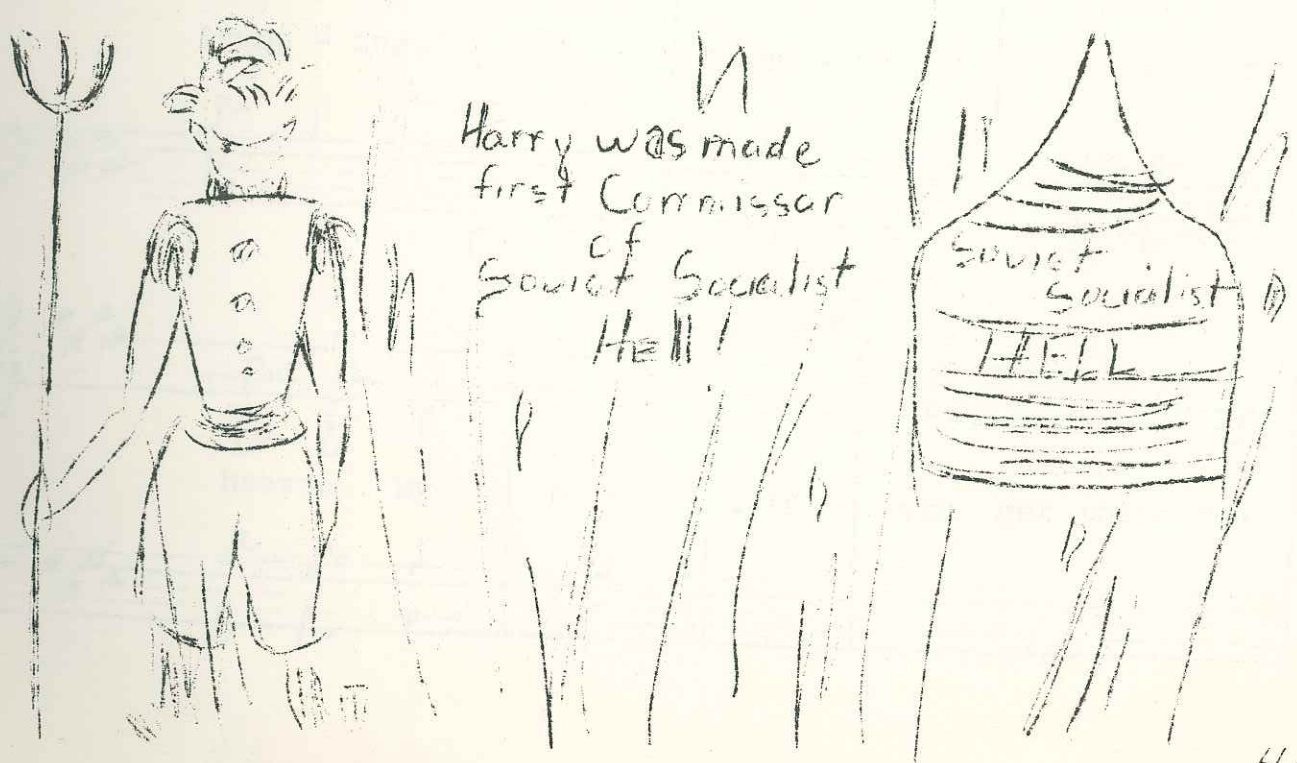 Harry was made
first Commissar
of
Soviet Socialist
Hell!
Soviet
Socialist
HELL